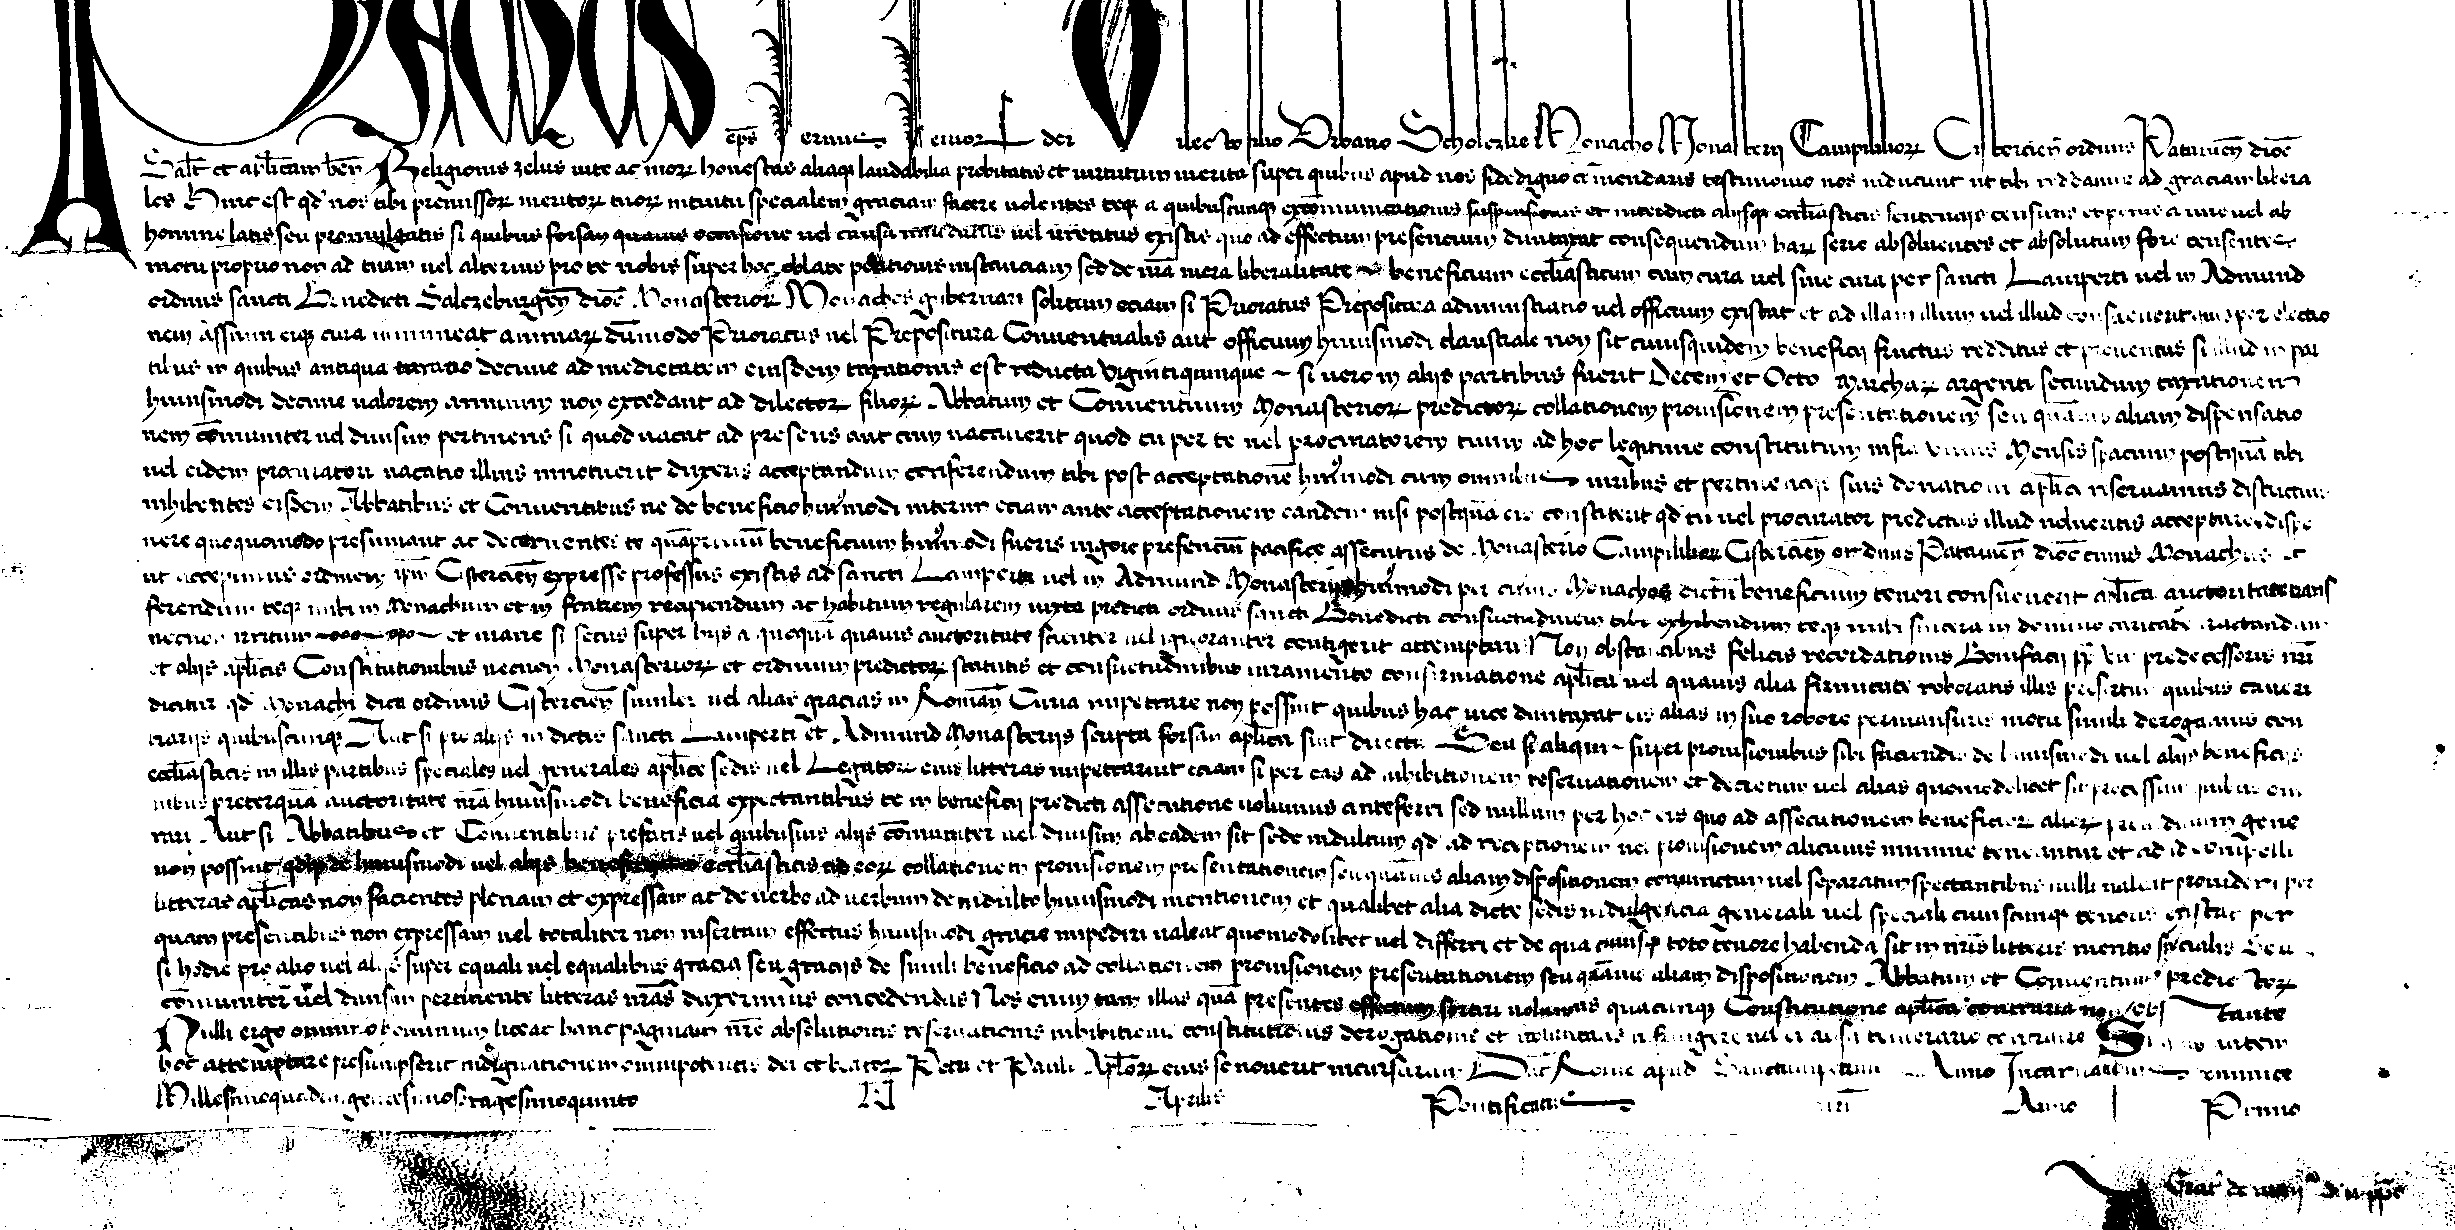 Paulus eps servus servorum dei Dilecto filio Urbano Monacho Monasterii Campililiorz Cistercien ordinis Patavien dioc
Salt et aplicam ben Religionis zelus vite ac morz honestas aliaqz laudabilia probitatis et virtutum merita super quibus apud nos fidedigno comendaris testimonio nos inducunt ut tibi reddamur ad graciam libera
les Hinc est qd nos tibi premissorz meritorz tuorz intuitu specialem graciam facere volentes teqz a quibuscunqz excomunicationis suspensionis et interdicti aliisqz eccliasticis sententiis censuris et penis a iure vel ab
homine latis seu promulgatis si quibus forsan quavis occasione vel causa vel irretitus existis quo ad effectum presencium duntaxat consequendum harz serie absolventes et absolutum fore censentes
motu proprio non ad tuam vel alterius pro te nobis super hoc oblate petitionis instanciam sed de nra mera liberalitate beneficium eccliasticum cum cura vel sine cura per sancti Lamperti vel in Admund
ordinis sancti Benedicti Salczeburgen dioc Monasteriorz Monachos gubernari solitum eciam si Prioratus Prepositura administratio vel officium existat et ad illam illum vel illud consueverit quis per electio
nem assumi eiqz cura immineat animarz dumodo Prioratus vel Prepositura Conventualis aut officium huiusmodi claustrale non sit cuiusquidem beneficii fructus redditus et proventus si illud in par
tibus in quibus antiqua taxatio decime ad medietatem eiusdem taxationis est reducta viginti quinque si vero in aliis partibus fuerit Decem et Octo Marcharz argenti secundum taxationem
huiusmodi decime valorem annuum non excedant ad dilectorz filiorz Abbatum et Conventuum Monasteriorz predictorz collationem provisionem presentationem seu quamvis aliam dispensatio
nem comuniter vel divisim pertinens si quod vacat ad presens aut cum vacaverit quod tu per te vel procuratorem tuum ad hoc legitime constitutum infra unius Mensis spacium postqua tibi
vel eidem procuratori vacatio illius innotuerit duxeris acceptandum conferendum tibi post acceptatione huiusmodi cum omnibus iuribus et pertinenciis suis donationi aplice reservamus districtius
inhibentes eisdem Abbatibus et Conventibus ne de beneficio huiusmodi interim eciam ante acceptationem eandem nisi postqua eis constiterit qd tu vel procurator predictus illud nolueritis acceptare dispo
nere quoquomodo presumant ac decernentes te quaprimum beneficium huiusmodi fueris vigore presencium pacifice assecutus de Monasterio Campililiorz Cistercien ordinis Patavien dioc cuius Monachus et
ut accepimus ordinem ipm Cistercien expresse professus existis ad sancti Lamperti vel in Admund Monasterium huiusmodi per cuius Monachos dictum beneficium teneri consueverit aplica auctoritate trans
ferendum teqz inibi in Monachum et in fratrem recipiendum ac habitum regularem iuxta predicti ordinis sancti Benedicti consuetudinem tibi exhibendum teqz inibi sincera in domino caritate tractandum
necnon irritum et inane si secus super hiis a quoqua quavis auctoritate scienter vel ignoranter contigerit attemptari Non obstantibus felicis recordationis Bonifacii pp predecessoris nri
et aliis aplicis Constitutionibus necnon Monasteriorz et ordinum predictorz statutis et consuetudinibus iuramento confirmatione aplica vel quavis alia firmitate roboratis illis presertim quibus caveri
dicitur qd Monachi dicti ordinis Cistercien similes vel alias gracias in Roman Curia impetrare non possint quibus hac vice duntaxat eis alias in suo robore permansuris motu simili derogamus con
trariis quibuscunqz Aut si pro aliis in dictis sancti Lamperti et Admund Monasteriis scripta forsan aplica sint directa Seu si aliqui super provisionibus sibi faciendis de huiusmodi vel aliis beneficiis
eccliasticis in illis partibus speciales vel generales aplice sedis vel Legatorz eius litteras impetrarint eciam si per eas ad inhibitionem reservationem et decretum vel alias quomodolibet sit processum quibus om
nibus preterqua auctoritate nra huiusmodi beneficia expectantibus te in beneficii predicti assecutione volumus anteferri sed nullum per hoc eis quo ad assecutionem beneficiorz aliorz preiudicium gene
rari Aut si Abbatibus et Conventibus prefatis vel quibusvis aliis comuniter vel divisim ab eadem sit sede indultum qd ad receptionem vel provisionem alicuius minime teneantur et ad id compelli
non possint qdqz de huiusmodi vel aliis beneficiis eccliasticis ad eorz collationem provisionem presentationem seu quamvis aliam dispositionem coniunctim vel separatim spectantibus nulli valeat provideri per
litteras aplicas non facientes plenam et expressam ac de verbo ad verbum de indulto huiusmodi mentionem et qualibet alia dicte sedis indulgencia generali vel speciali cuiuscunqz tenoris existat per
quam presentibus non expressam vel totaliter non insertam effectus huiusmodi gracie impediri valeat quomodolibet vel differri et de qua cuiusqz toto tenore habenda sit in nris litteris mentio specialis Seu
si hodie pro alio vel aliis super equali vel equalibus gracia seu graciis de simili beneficio ad collationem provisionem presentationem seu quamvis aliam dispositionem Abbatum et Conventuum predictorz
comuniter vel divisim pertinente litteras nras duxerimus concedendas Nos enim tam illas qua presentes effectum sortiri volumus quacunqz Constitutione aplica contraria non obstante
Nulli ergo omnino hominum liceat hanc paginam nre absolutionis reservationis inhibitionis constitutionis derogationis et voluntatis infringere vel ei ausu temerario contraire Si quis autem
hoc attemptare presumpserit indignationem omnipotentis dei et beatorz Petri et Pauli Aplorz eius se noverit incursurum Dat Rome apud Sanctumpetrum Anno Incarnationis dominice
Millesimoquadringentesimosexagesimoquinto Aprilis Pontificatus nri Anno Primo